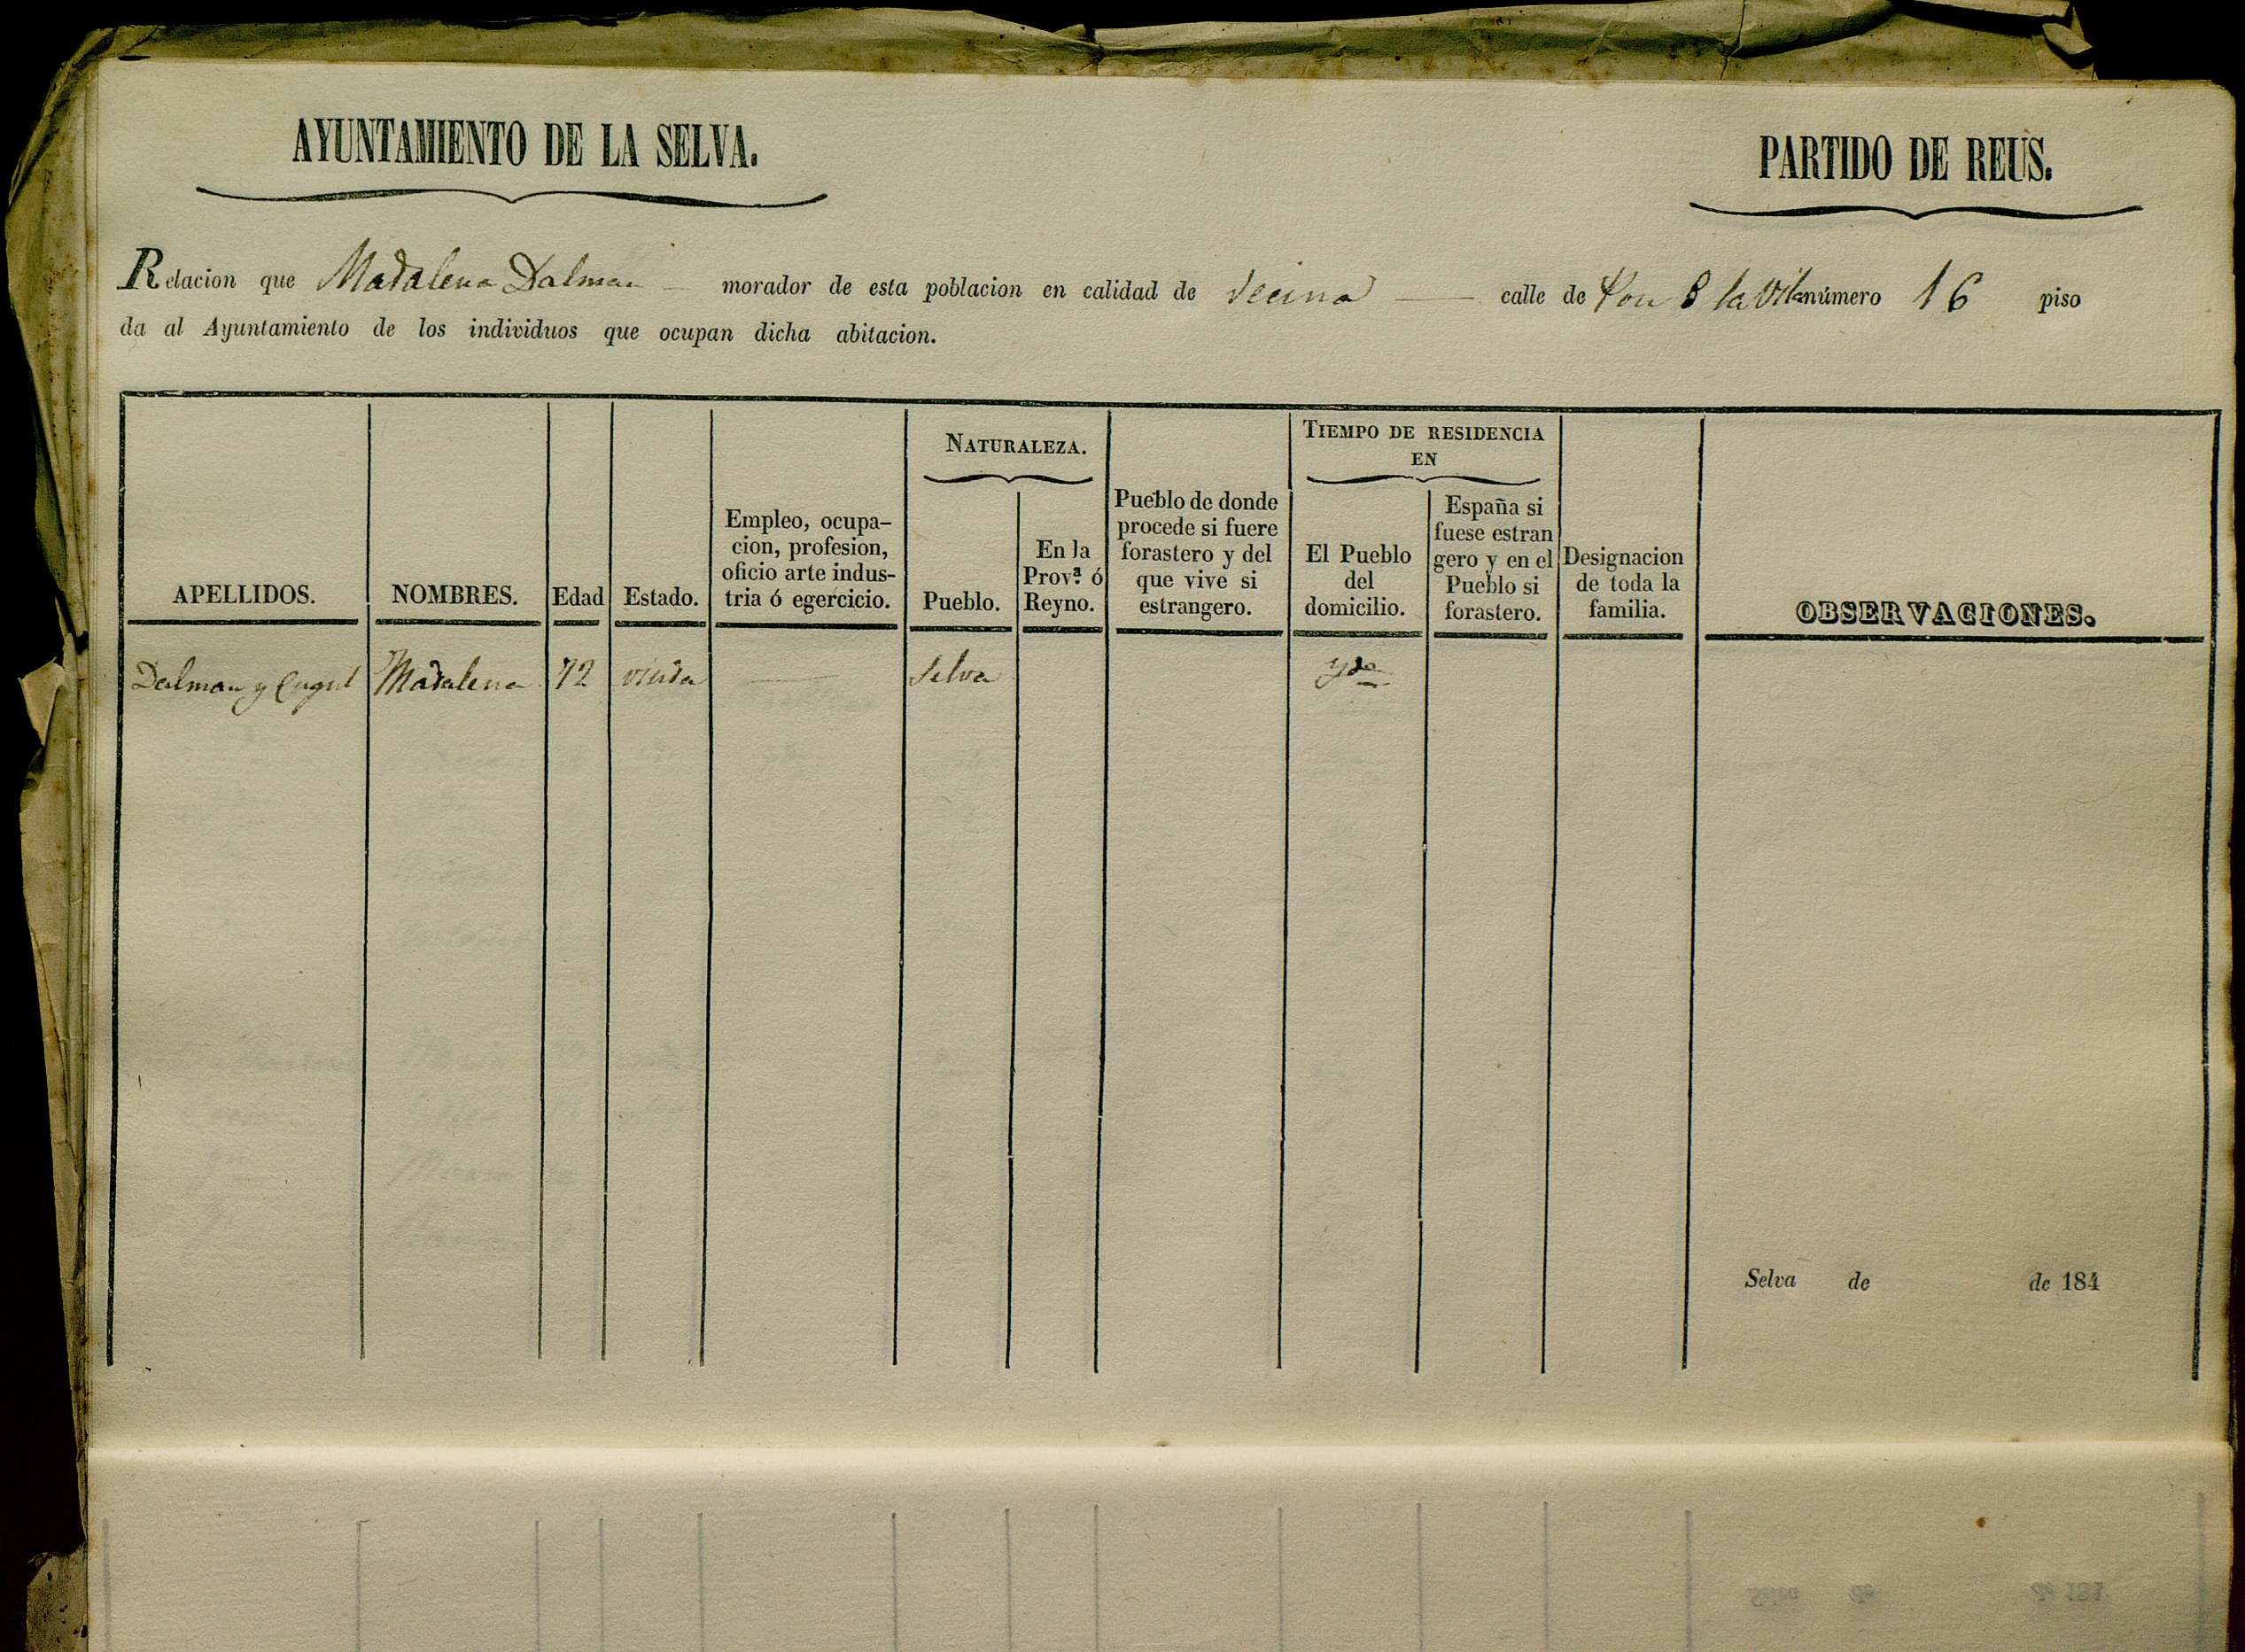 AYUNTAMIENTO DE LA SELVA.
PARTIDO DE REUS.
Relacion que Madalena Dalmau morador de esta poblacion en calidad de vecina calle de la Vila número 16 piso
da al Ayuntamiento de los individuos que ocupan dicha abitacion.
NATURALEZA.
TIEMPO DE RESIDENCIA
EN
APELLIDOS.
NOMBRES.
Edad
Estado.
Empleo, ocupa-
cion, profesion,
oficio arte indus-
tria ó egercicio.
Pueblo.
En la
Prov.ª ó
Reyno.
Pueblo de donde
procede si fuere
forastero y del
que vive si
estrangero.
El Pueblo
del
domicilio.
España si
fuese estran
gero y en el
Pueblo si
forastero.
Designacion
de toda la
familia.
OBSERVACIONES.
Dalmau y Cugul Madalena 72 viuda Selva yd.
Selva de de 184